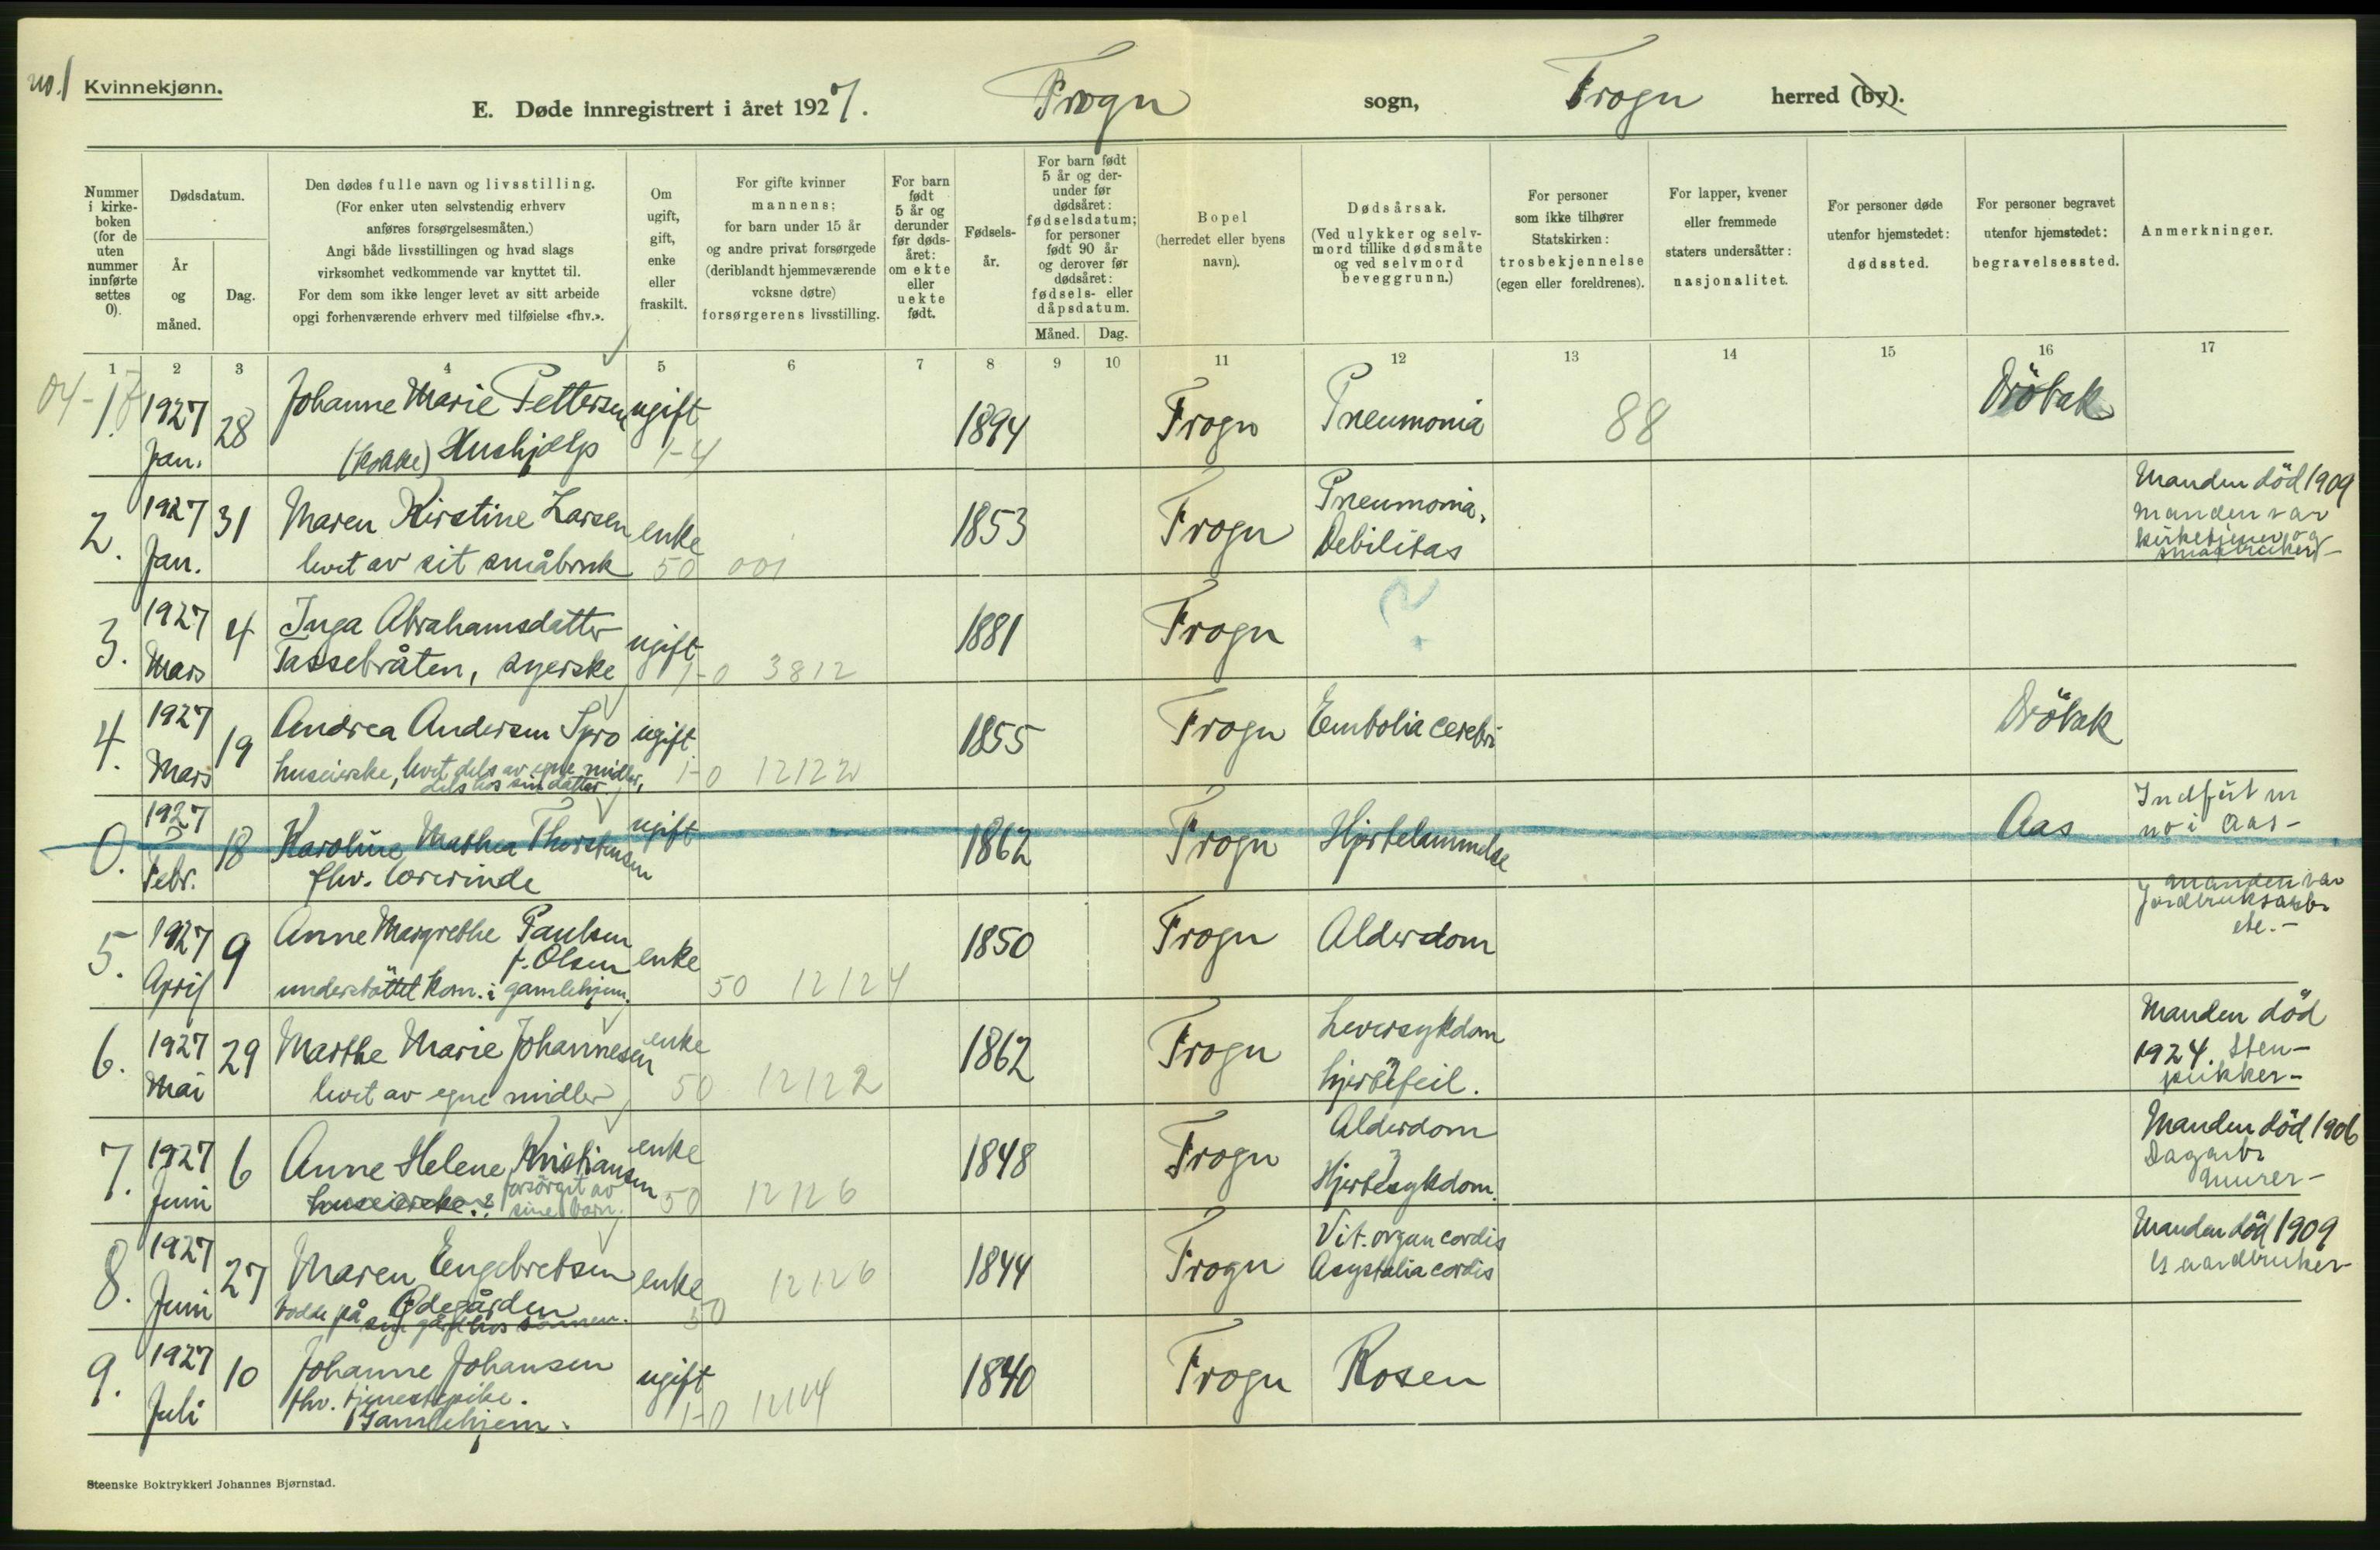 no. 1
Kvinnekjønn.
E. Døde innregistrert i året 1927. Frogn sogn, Frogn herred (by).
Nummer i kirke-boken (for de uten nummer innførte settes 0).
Dødsdatum.
År og måned.
Dag.
Den dødes fulle navn og livsstilling.
(For enker uten selvstendig erhverv
anføres forsørgelsesmåten.)
Angi både livsstillingen og hvad slags
virksomhet vedkommende var knyttet til.
For dem som ikke lenger levet av sitt arbeide
opgi forhenværende erhverv med tilføielse «fhv.».
Om ugift, gift, enke eller fraskilt.
For gifte kvinner
mannens;
for barn under 15 år
og andre privat forsørgede
(deriblandt hjemmeværende
voksne døtre)
forsørgerens livsstilling.
For barn født 5 år og derunder før døds-året: om ekte eller uekte født.
Fødsels-år.
For barn født 5 år og der-under før dødsåret: fødselsdatum; for personer født 90 år og derover før dødsåret: fødsels- eller dåpsdatum.
Måned. Dag.
Bopel
(herredet eller byens
navn).
Dødsårsak.
(Ved ulykker og selv-
mord tillike dødsmåte
og ved selvmord
beveggrunn.)
For personer
som ikke tilhører
Statskirken:
trosbekjennelse
(egen eller foreldrenes).
For lapper, kvener
eller fremmede
staters undersåtter:
nasjonalitet.
For personer døde
utenfor hjemstedet:
dødssted.
For personer begravet
utenfor hjemstedet:
begravelsessted.
Anmerkninger.
1 2 3 4 5 6 7 8 9 10 11 12 13 14 15 16 17
1. 1927 Jan. 28 Johanne Marie Pettersen ugift 1894 Frogn Pneumonia 88 Dröbak
(kokke) Hushjelp 1-4
2. 1927 Jan. 31 Maren Kirstine Larsen enke 1853 Frogn Pneumonia, Debilitas Manden död 1909
levet av sit småbruk 50 001 manden var
kirketjener og
småbruker
3. 1927 Mars 4 Inga Abrahamsdatter ugift 1881 Frogn ?
Tassebråten, syerske 1-0 3812
4. 1927 Mars 19 Andrea Andersen Spro ugift 1855 Frogn Embolia cerebri Dröbak
huseierske, levet dels av egne midler, 1-0 12122
dels hos sin datter.
0. 1927 Febr. 18 Karoline Mathea Thorstensen ugift 1862 Frogn Hjertelammelse Aas
fhv. lærerinde no i Aas-
5. 1927 April 9 Anne Margrethe Paulsen enke 1850 Frogn Alderdom manden var
f. Olsen Jordbruksarb.
understöttet kom. i gamlehjem. 50 12124 etc.-
6. 1927 Mai 29 Marthe Marie Johannesen enke 1862 Frogn Leversykdom Manden död
levet av egne midler 50 12122 hjertefeil. 1924. Sten-
pukker-
7. 1927 Juni 6 Anne Helene Kristiansen enke 1848 Frogn Alderdom Manden död 1906
huseierske.? forsörget av sine barn. 50 12126 Hjertesykdom. Dagarb.
murer-
8. 1927 Juni 27 Maren Engebretsen enke 1844 Frogn Vit. organ cordis Manden död 1909
Ödegården 50 12126 Asystolia cordis Gaardbruker
bodde på sin gård hos sönnen.
9. 1927 Juli 10 Johanne Johansen ugift 1840 Frogn Rosen
fhv. tjenestepike. 1-0
Gamlehjem.
Steenske Boktrykkeri Johannes Bjørnstad.